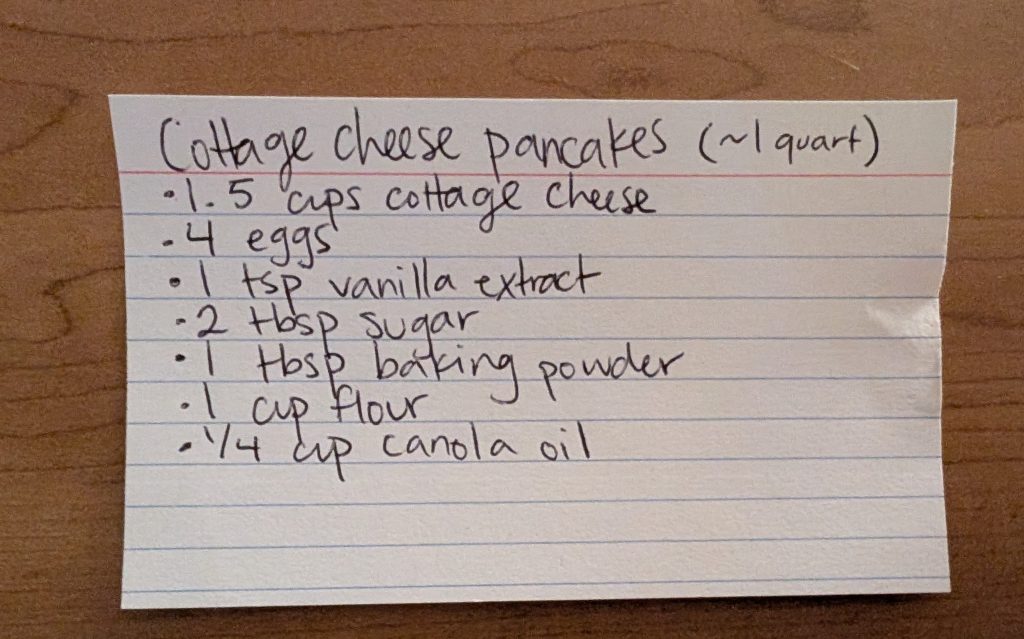 Cottage cheese pancakes (~1 quart)
• 1.5 cups cottage cheese
• 4 eggs
• 1 tsp vanilla extract
• 2 tbsp sugar
• 1 tbsp baking powder
• 1 cup flour
• 1/4 cup canola oil